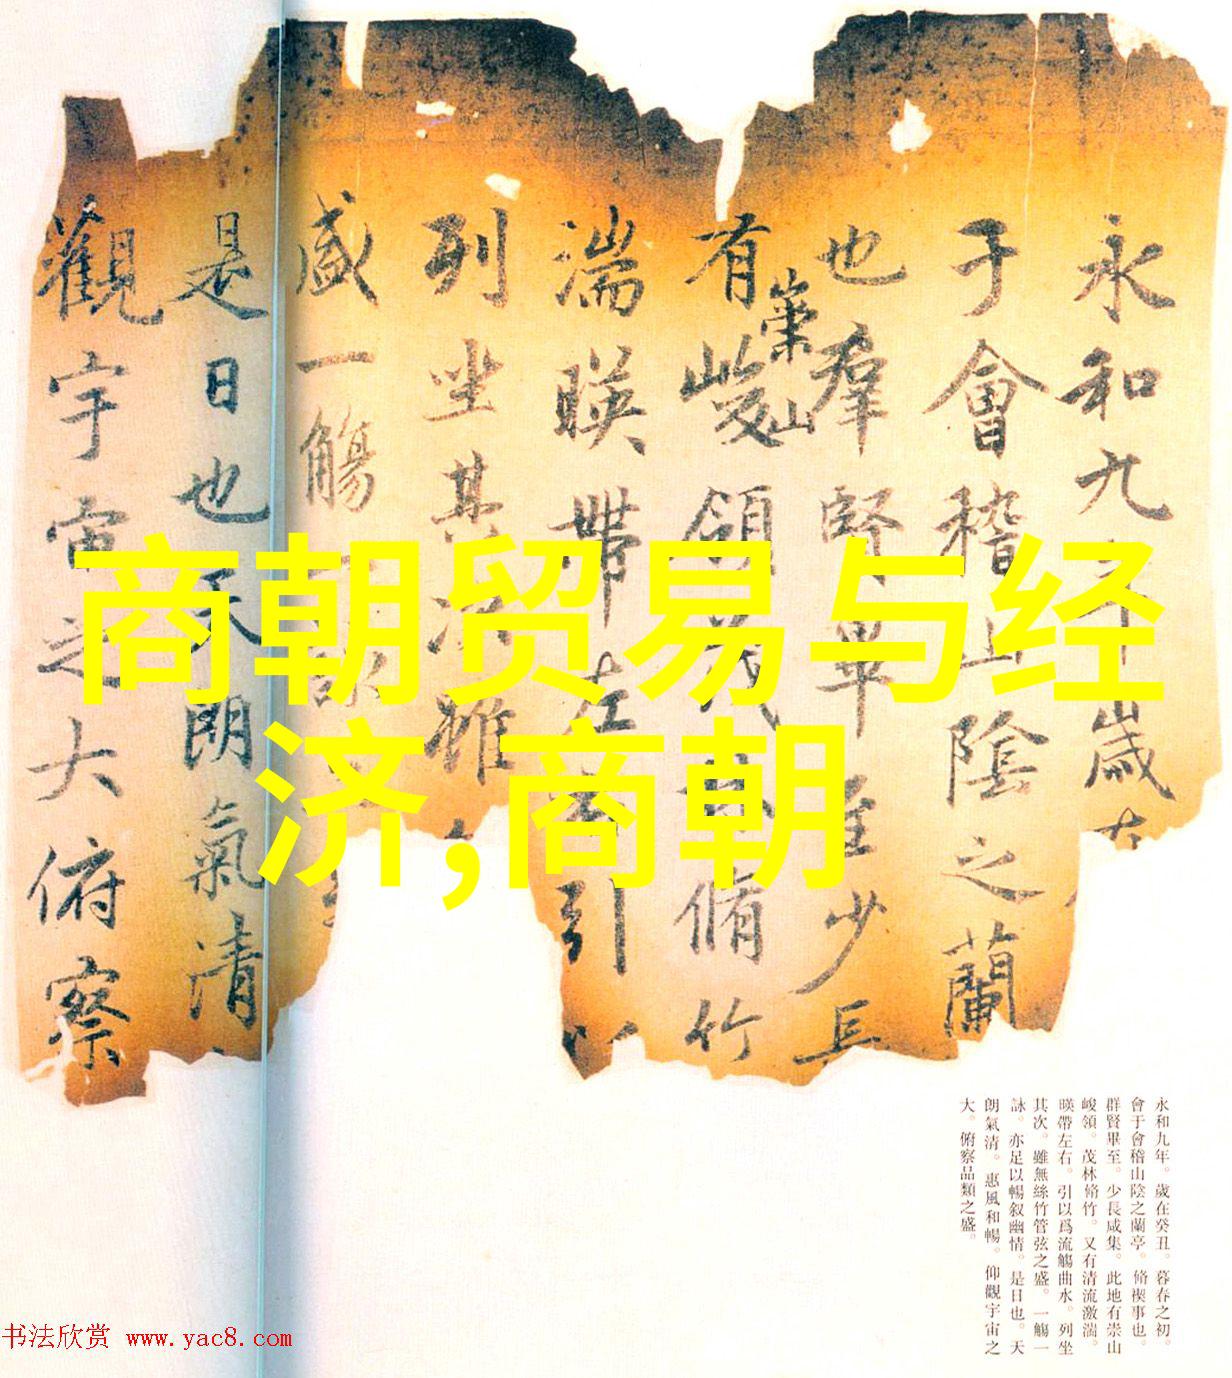 永和九年歲在
于會稽山陰之蘭
也羣賢畢至少長
有崇山峻領茂林脩竹
湍暎帶左右引以
列坐其次雖
盛一觴一詠
是日也天朗氣清
觀宇宙之大俯察
商朝贸易与经
济,商朝
永和九年。歲在癸丑。暮春之初。
會于會稽山陰之蘭亭。脩禊事也。
群賢畢至。少長咸集。此地有崇山
峻領。茂林脩竹。又有清流激湍。
暎帶左右。引以爲流觴曲水。列坐
其次。雖無絲竹管弦之盛。一觴一
詠。亦足以暢叙幽情。是日也。天
朗氣清。惠風和暢。仰觀宇宙之
大。俯察品類之盛。
书法欣赏 www.yac8.com